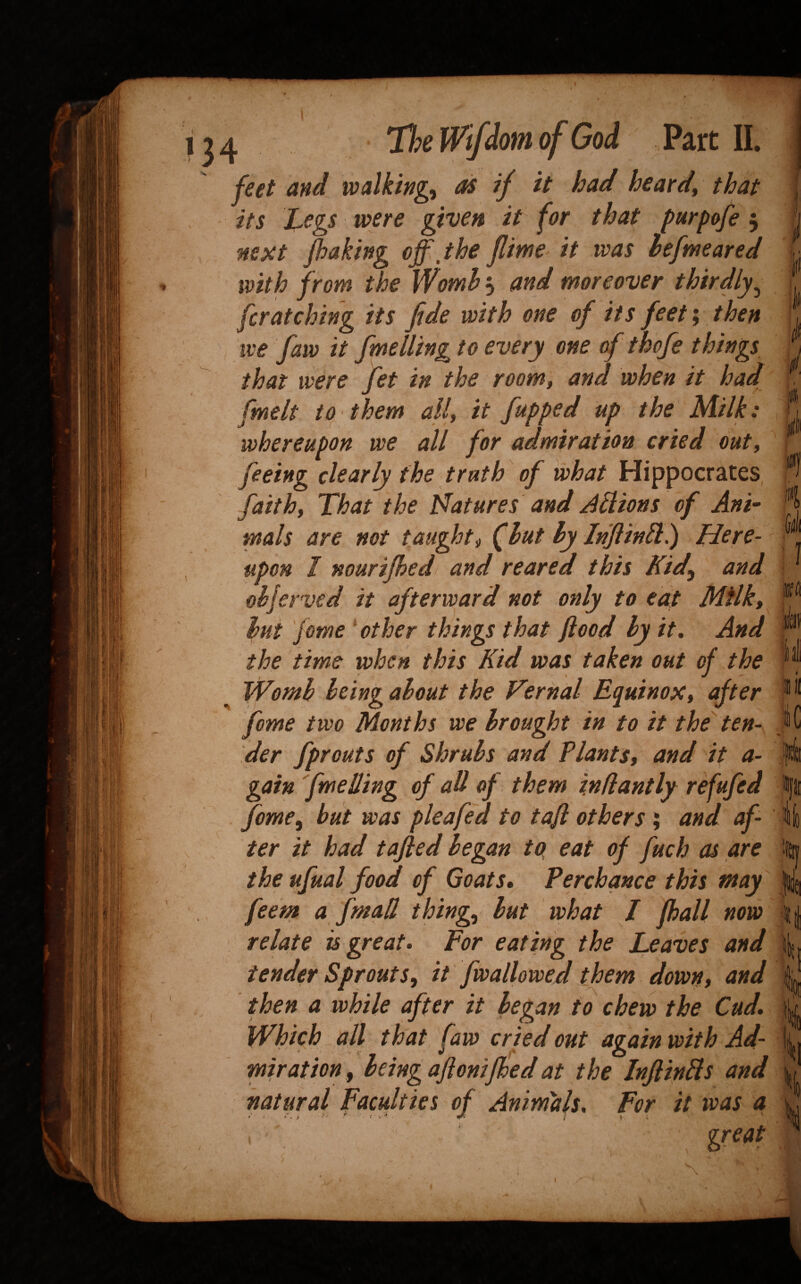 134 The Wiſdom of God Part II.
feet and walking, as if it had heard, that
its Legs were given it for that purpoſe;
next ſhaking off the ſlime it was beſmeared
with from the Womb; and moreover thirdly,
ſcratching its ſide with one of its feet; then
we ſaw it ſmelling to every one of thoſe things
that were ſet in the room, and when it had
ſmelt to them all, it ſupped up the Milk:
whereupon we all for admiration cried out,
ſeeing clearly the truth of what Hippocrates
ſaith, That the Natures and Actions of Ani-
mals are not taught, (but by Inſtinct.) Here-
upon I nouriſhed and reared this Kid, and
obſerved it afterward not only to eat Milk,
but ſome other things that ſtood by it. And
the time when this Kid was taken out of the
Womb being about the Vernal Equinox, after
ſome two Months we brought in to it the ten-
der ſprouts of Shrubs and Plants, and it a-
gain ſmelling of all of them inſtantly refuſed
ſome, but was pleaſed to taſt others; and af-
ter it had taſted began to eat of ſuch as are
the uſual food of Goats. Perchance this may
ſeem a ſmall thing, but what I ſhall now
relate is great. For eating the Leaves and
tender Sprouts, it ſwallowed them down, and
then a while after it began to chew the Cud.
Which all that ſaw cried out again with Ad-
miration, being aſtoniſhed at the Inſtincts and
natural Faculties of Animals. For it was a
great